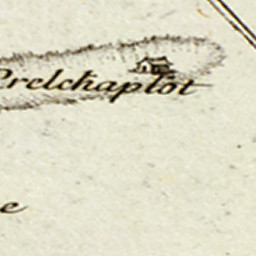 Prelchaplöt
e